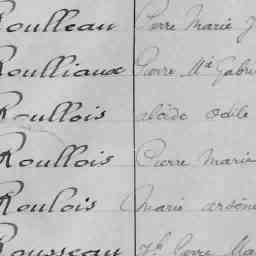 Roulleau Pierre Marie J
Roulliaux Pierre Mie Gabri
Roullois alcide odile
Roullois Pierre Marie
Roulois Marie arsène
Rousseau Jh Pierre Ma